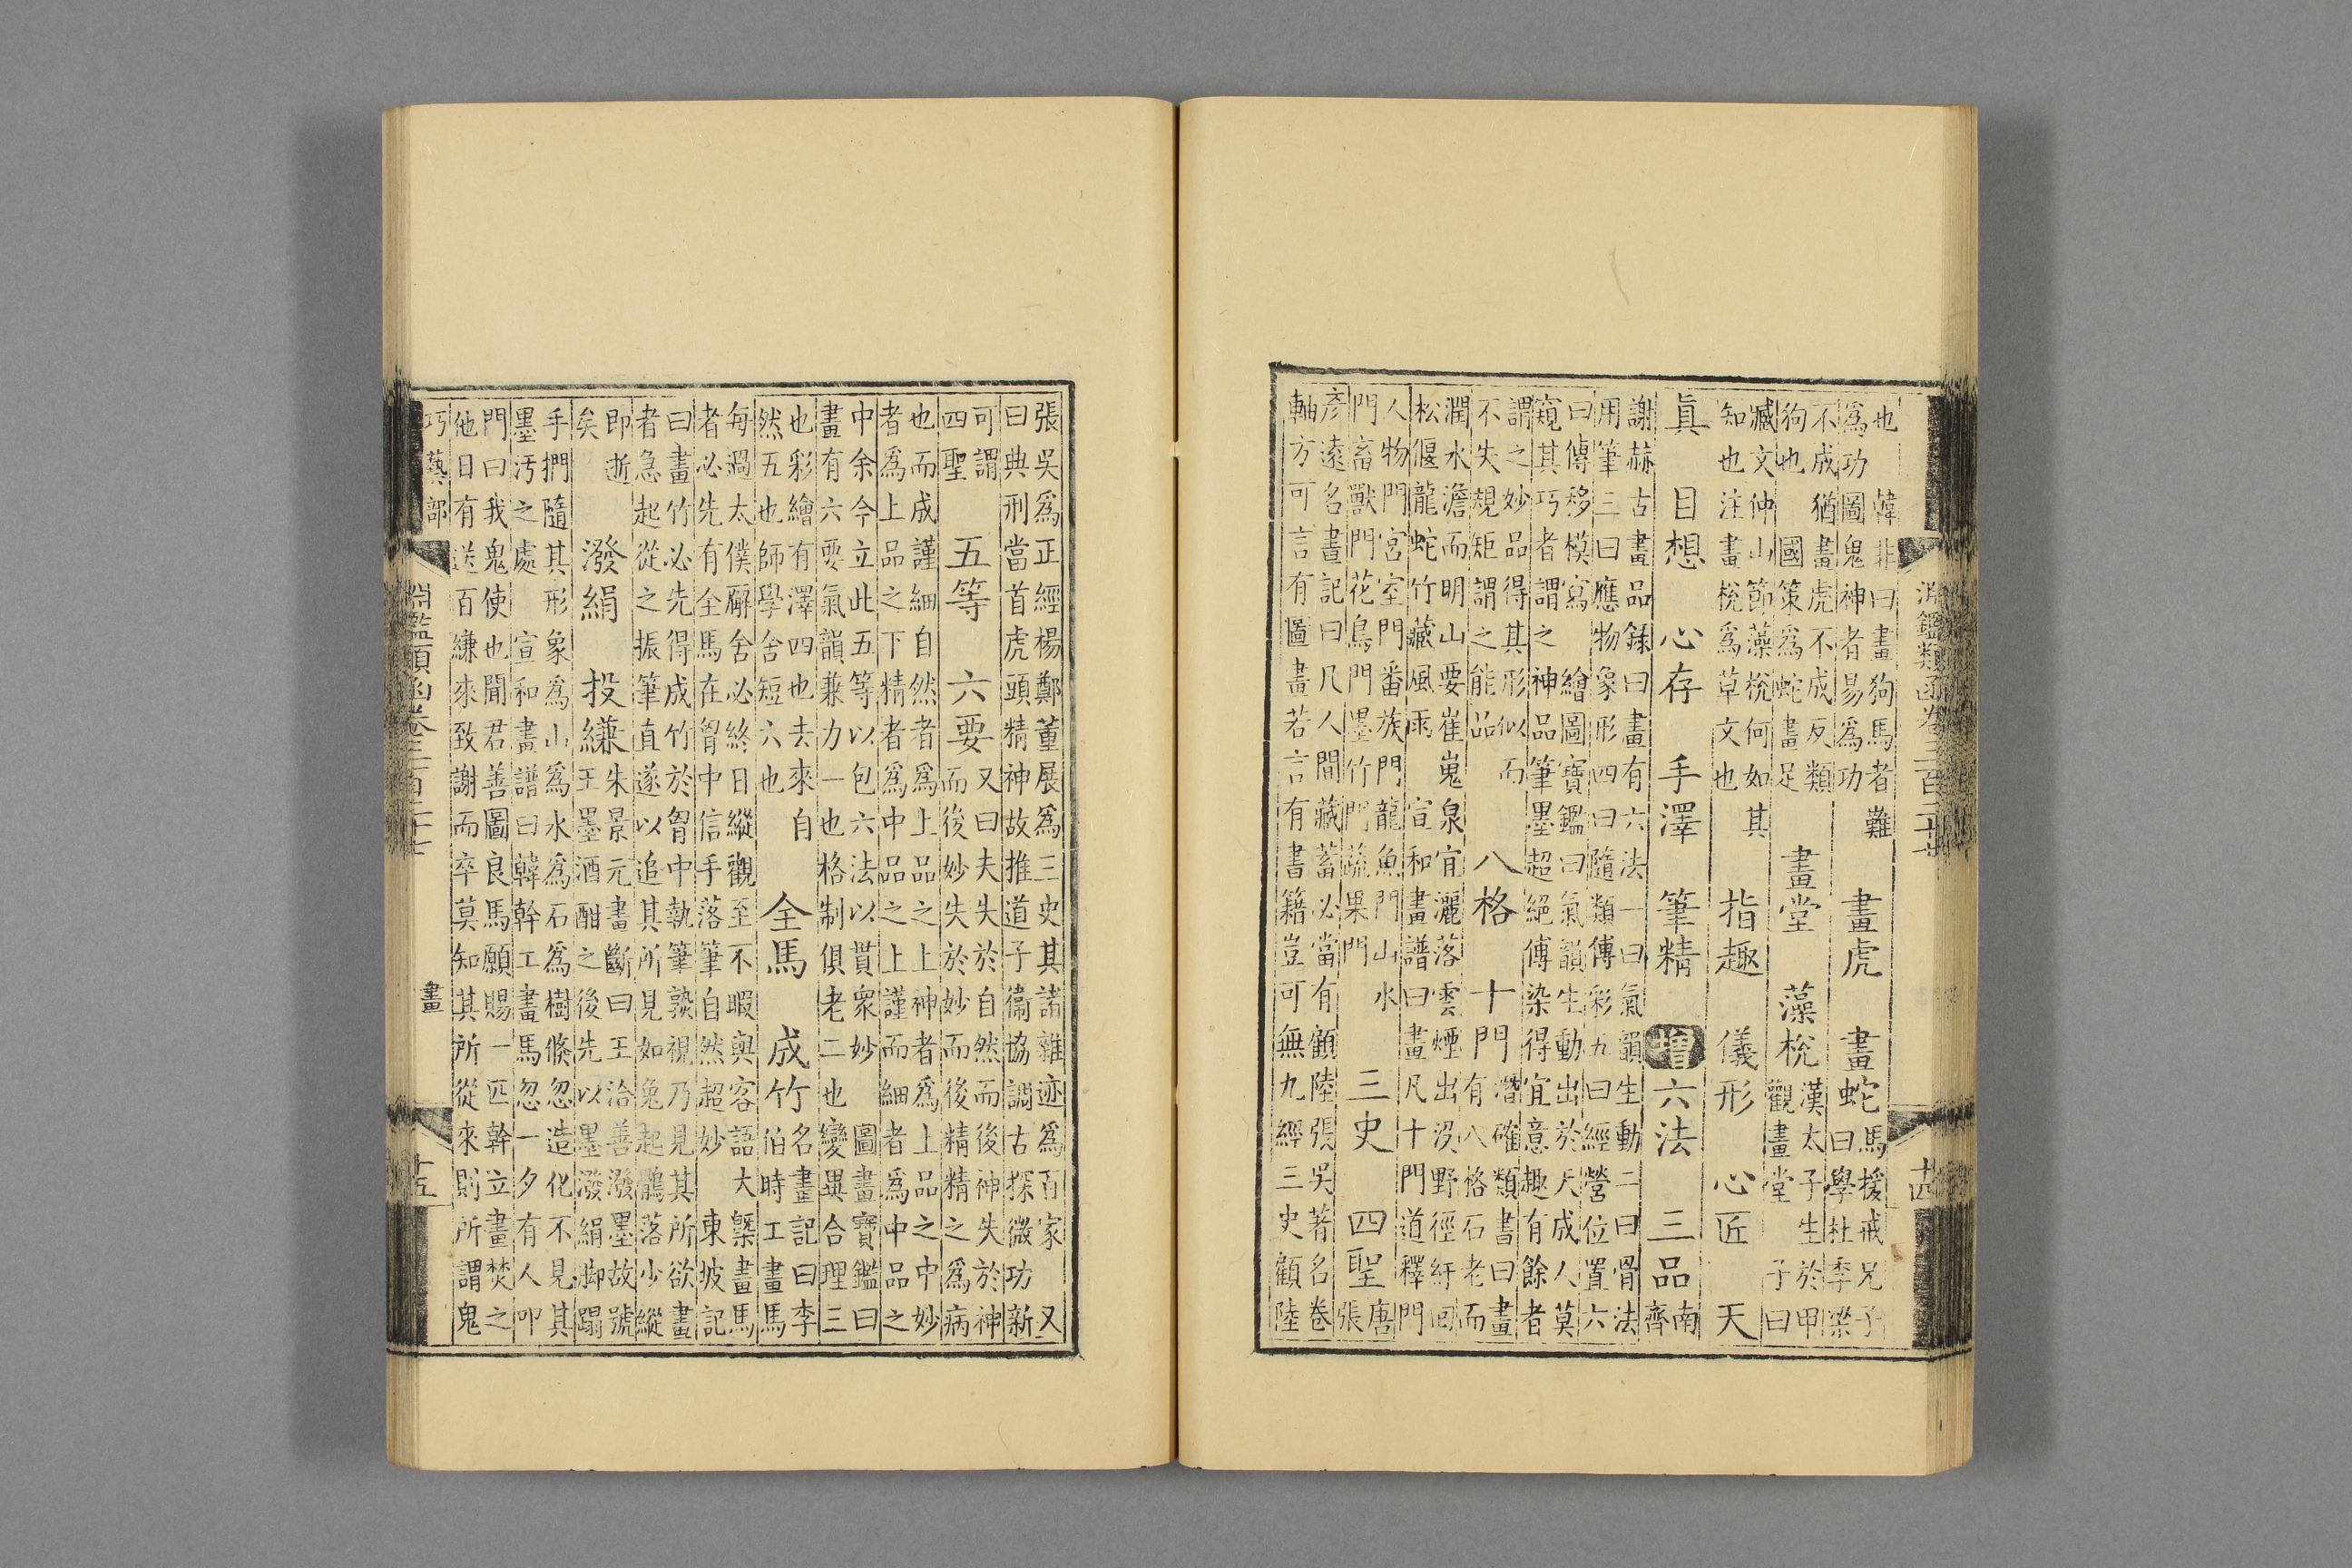 淵鑑類函卷三百二十七
十四
也 韓非曰畫狗馬者難
爲功圖鬼神者易爲功
畫虎 畫蛇
馬援戒兄子
曰學杜季梁
不成猶畫虎不成反類
狗也 國策爲蛇畫足
畫堂 藻梲
漢太子生於甲
觀畫堂 子曰
臧文仲山節藻梲何如其
知也注畫梲爲草文也
指趣 儀形 心匠 天
眞 目想 心存 手澤 筆精 增 六法 三品
南
齊
謝赫古畫品錄曰畫有六法一曰氣韻生動二曰骨法
用筆三曰應物象形四曰隨類傳彩五曰經營位置六
曰傳移模寫 繪圖寶鑑曰氣韻生動出於天成人莫
窺其巧者謂之神品筆墨超絕傳染得宜意趣有餘者
謂之妙品得其形似而
不失規矩謂之能品
八格 十門
潛確類書曰畫
有八格石老而
潤水澹而明山要崔嵬泉宜灑落雲煙出沒野徑紆回
松偃龍蛇竹藏風雨 宣和畫譜曰畫凡十門道釋門
人物門宮室門番族門龍魚門山水
門畜獸門花鳥門墨竹門蔬果門
三史 四聖
唐
張
彥遠名畫記曰凡人間藏蓄必當有顧陸張吳著名卷
軸方可言有圖畫若言有書籍豈可無九經三史顧陸
張吳爲正經楊鄭董展爲三史其諸雜迹爲百家 又
曰典刑當首虎頭精神故推道子備協調古探微功新
可謂
四聖
五等 六要
又曰夫失於自然而後神失於神
而後妙失於妙而後精精之爲病
也而成謹細自然者爲上品之上神者爲上品之中妙
者爲上品之下精者爲中品之上謹而細者爲中品之
中余今立此五等以包六法以貫衆妙 圖畫寶鑑曰
畫有六要氣韻兼力一也格制俱老二也變異合理三
也彩繪有澤四也去來自
然五也師學舍短六也
全馬 成竹
名畫記曰李
伯時工畫馬
每過太僕廨舍必終日縱觀至不暇與客語大槩畫馬
者必先有全馬在胷中信手落筆自然超妙 東坡記
曰畫竹必先得成竹於胷中執筆熟視乃見其所欲畫
者急起從之振筆直遂以追其所見如兔起鶻落少縱
即逝
矣
潑絹 投縑
朱景元畫斷曰王洽善潑墨故號
王墨酒酣之後先以墨潑絹脚蹋
手捫隨其形象爲山爲水爲石爲樹倐忽造化不見其
墨汚之處 宣和畫譜曰韓幹工畫馬忽一夕有人叩
門曰我鬼使也聞君善圖良馬願賜一匹幹立畫焚之
他日有送百縑來致謝而卒莫知其所從來則所謂鬼
巧藝部 畫
淵鑑類函卷三百二十七
十五